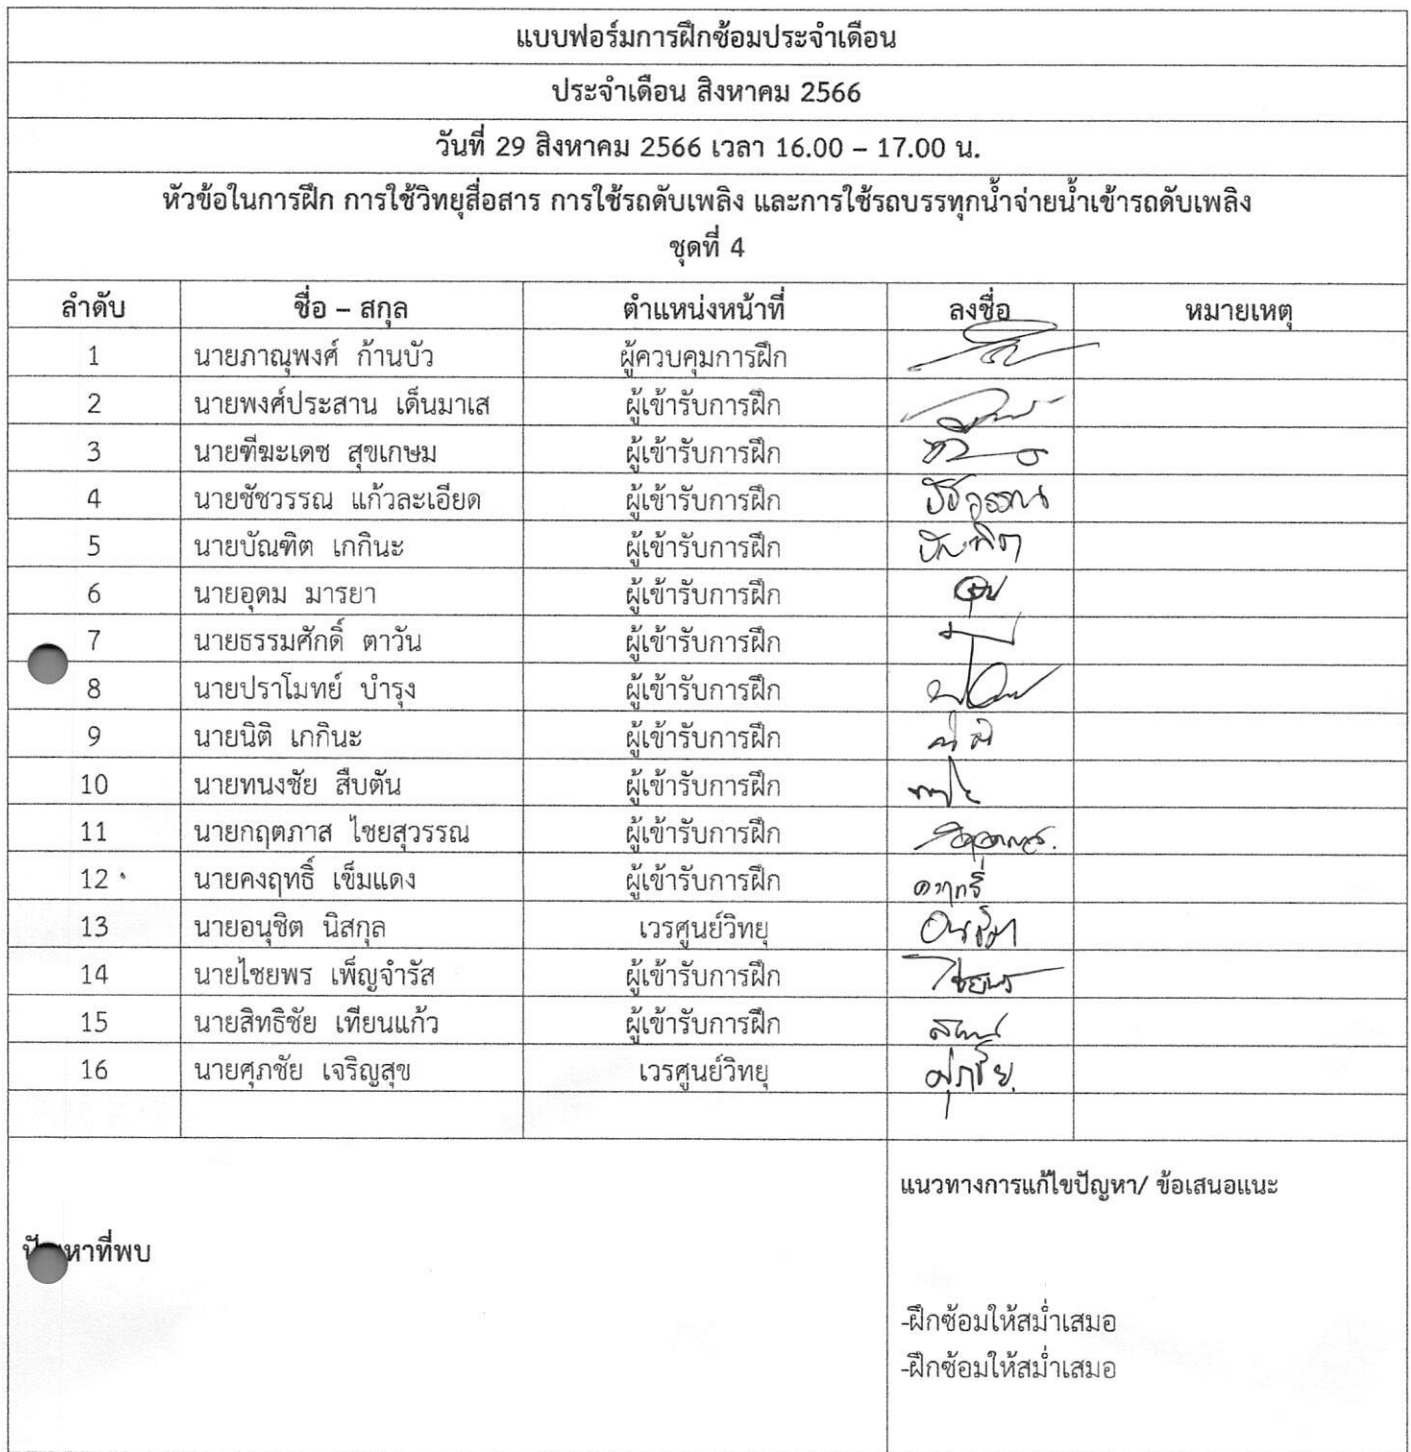 แบบฟอร์มการฝึกซ้อมประจำเดือน
ประจำเดือน สิงหาคม 2566
วันที่ 29 สิงหาคม 2566 เวลา 16.00 – 17.00 น.
หัวข้อในการฝึก การใช้วิทยุสื่อสาร การใช้รถดับเพลิง และการใช้รถบรรทุกน้ำจ่ายน้ำเข้ารถดับเพลิง
ชุดที่ 4
ลำดับ ชื่อ – สกุล ตำแหน่งหน้าที่ ลงชื่อ หมายเหตุ
1 นายภาณุพงศ์ ก้านบัว ผู้ควบคุมการฝึก
2 นายพงศ์ประสาน เด็นมาเส ผู้เข้ารับการฝึก
3 นายฑีฆะเดช สุขเกษม ผู้เข้ารับการฝึก
4 นายชัชวรรณ แก้วละเอียด ผู้เข้ารับการฝึก ชัชวรรณ
5 นายบัณฑิต เกกินะ ผู้เข้ารับการฝึก บัณฑิต
6 นายอุดม มารยา ผู้เข้ารับการฝึก
7 นายธรรมศักดิ์ ตาวัน ผู้เข้ารับการฝึก
8 นายปราโมทย์ บำรุง ผู้เข้ารับการฝึก
9 นายนิติ เกกินะ ผู้เข้ารับการฝึก
10 นายทนงชัย สืบตัน ผู้เข้ารับการฝึก
11 นายกฤตภาส ไชยสุวรรณ ผู้เข้ารับการฝึก
12 นายคงฤทธิ์ เข็มแดง ผู้เข้ารับการฝึก
13 นายอนุชิต นิสกุล เวรศูนย์วิทยุ
14 นายไชยพร เพ็ญจำรัส ผู้เข้ารับการฝึก ไชยพร
15 นายสิทธิชัย เทียนแก้ว ผู้เข้ารับการฝึก
16 นายศุภชัย เจริญสุข เวรศูนย์วิทยุ ศุภชัย
แนวทางการแก้ไขปัญหา/ ข้อเสนอแนะ
ปัญหาที่พบ
-ฝึกซ้อมให้สม่ำเสมอ
-ฝึกซ้อมให้สม่ำเสมอ